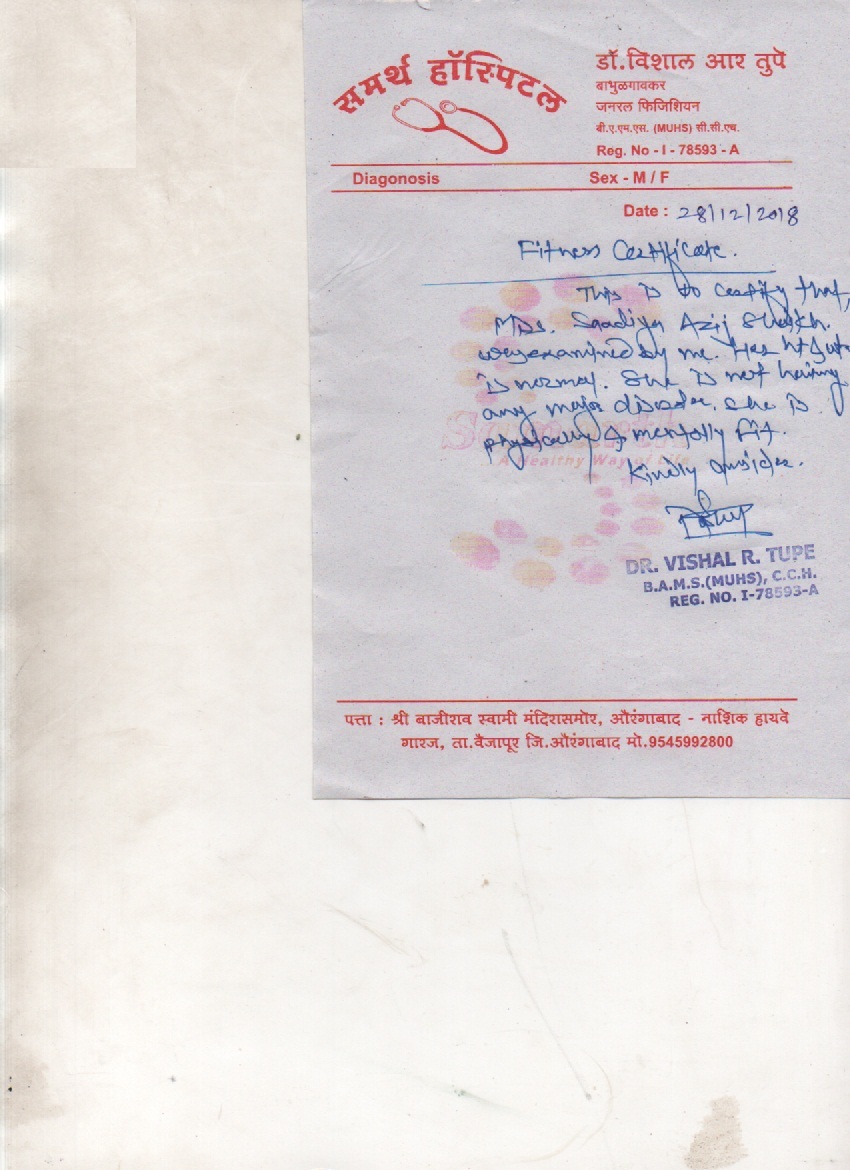 समर्थ हॉस्पिटल
डॉ.विशाल आर तुपे
बाभुळगावकर
जनरल फिजिशियन
बी.ए.एम.एस. (MUHS) सी.सी.एच.
Reg. No - I - 78593 - A
Diagonosis Sex - M / F
Date : 28/12/2018
Fitness Certificate.
This is to certify that,
Saadiya Azij Shaikh.
was examined by me. Her
is normal. She is not having
any major disorder. She is
physically & mentally Fit.
Kindly consider.
Samarth
A Healthy Way of Life
DR. VISHAL R. TUPE
B.A.M.S.(MUHS), C.C.H.
REG. NO. I-78593-A
पत्ता : श्री बाजीराव स्वामी मंदिरासमोर, औरंगाबाद - नाशिक हायवे
गारज, ता.वैजापूर जि.औरंगाबाद मो.9545992800